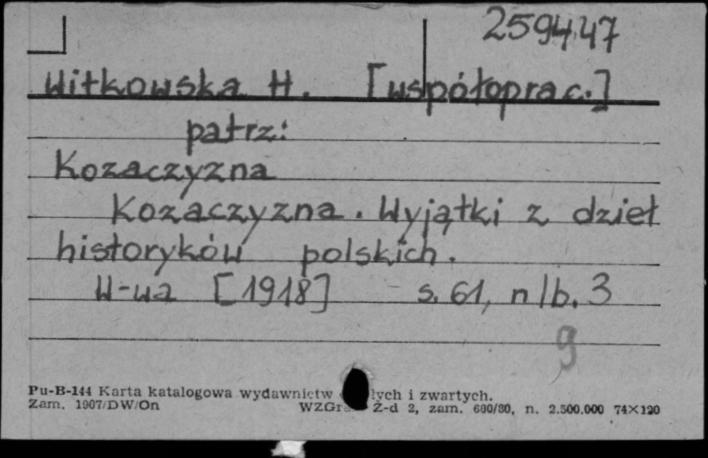 259447
Witkowska H. [współoprac.]
patrz:
Kozaczyzna
Kozaczyzna. Wyjątki z dzieł
historyków polskich.
W-wa [1918] s. 61, nlb. 3
9
Pu-B-144 Karta katalogowa wydawnictw łych i zwartych.
Zam. 1907/DW/On WZGr Z-d 2, zam. 680/80, n. 2.500.000 74×120